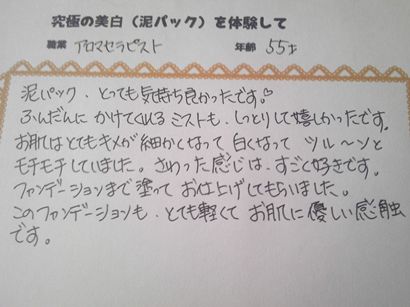 究極の美白（泥パック）を体験して
職業 アロマセラピスト 年齢 55才
泥パック、とっても気持ち良かったです。♡
ふんだんにかけてくれるミストも、しっとりして嬉しかったです。
お肌はとてもキメが細かくなって白くなってツル～ンと
モチモチしていました。さわった感じは、すごく好きです。
ファンデーションまで塗ってお仕上げしてもらいました。
このファンデーションも、とても軽くてお肌に優しい感触
です。